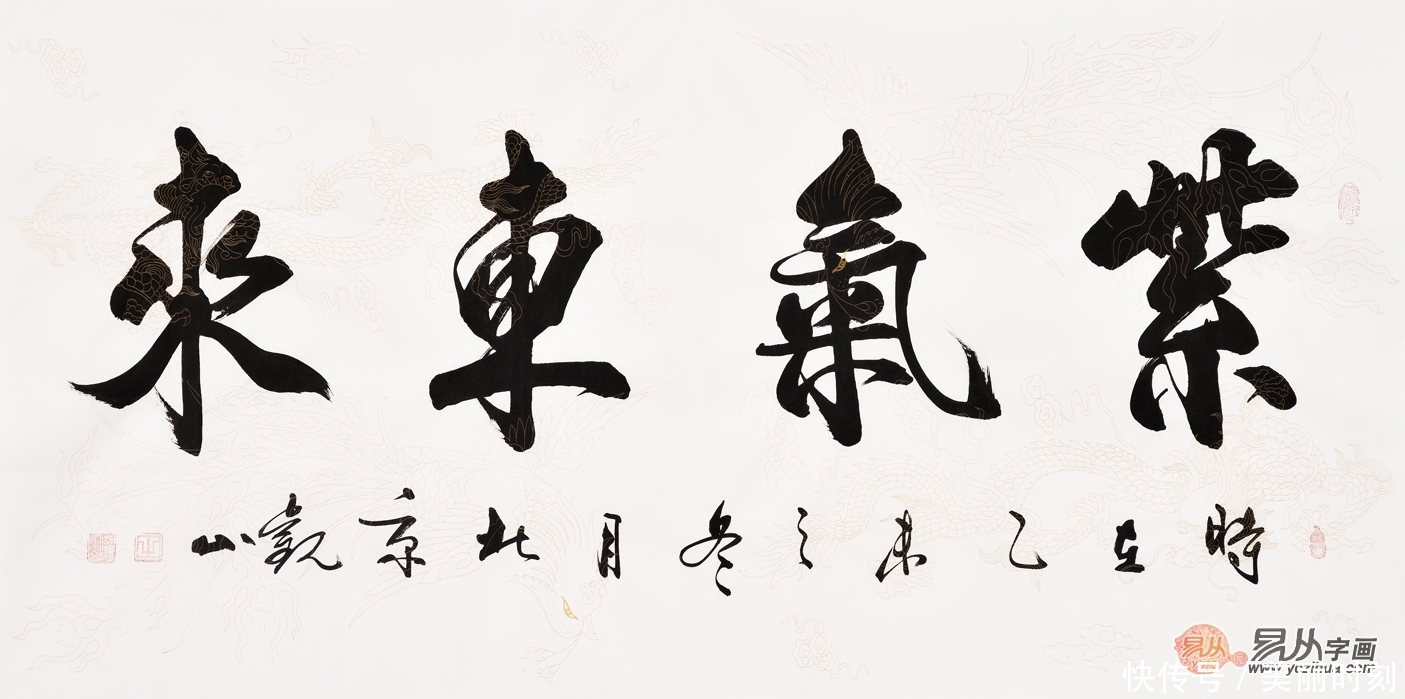 紫氣東來
時在乙未之冬月北京觀山
易从字画
www.yczihua.com
快传号 / 美丽时刻